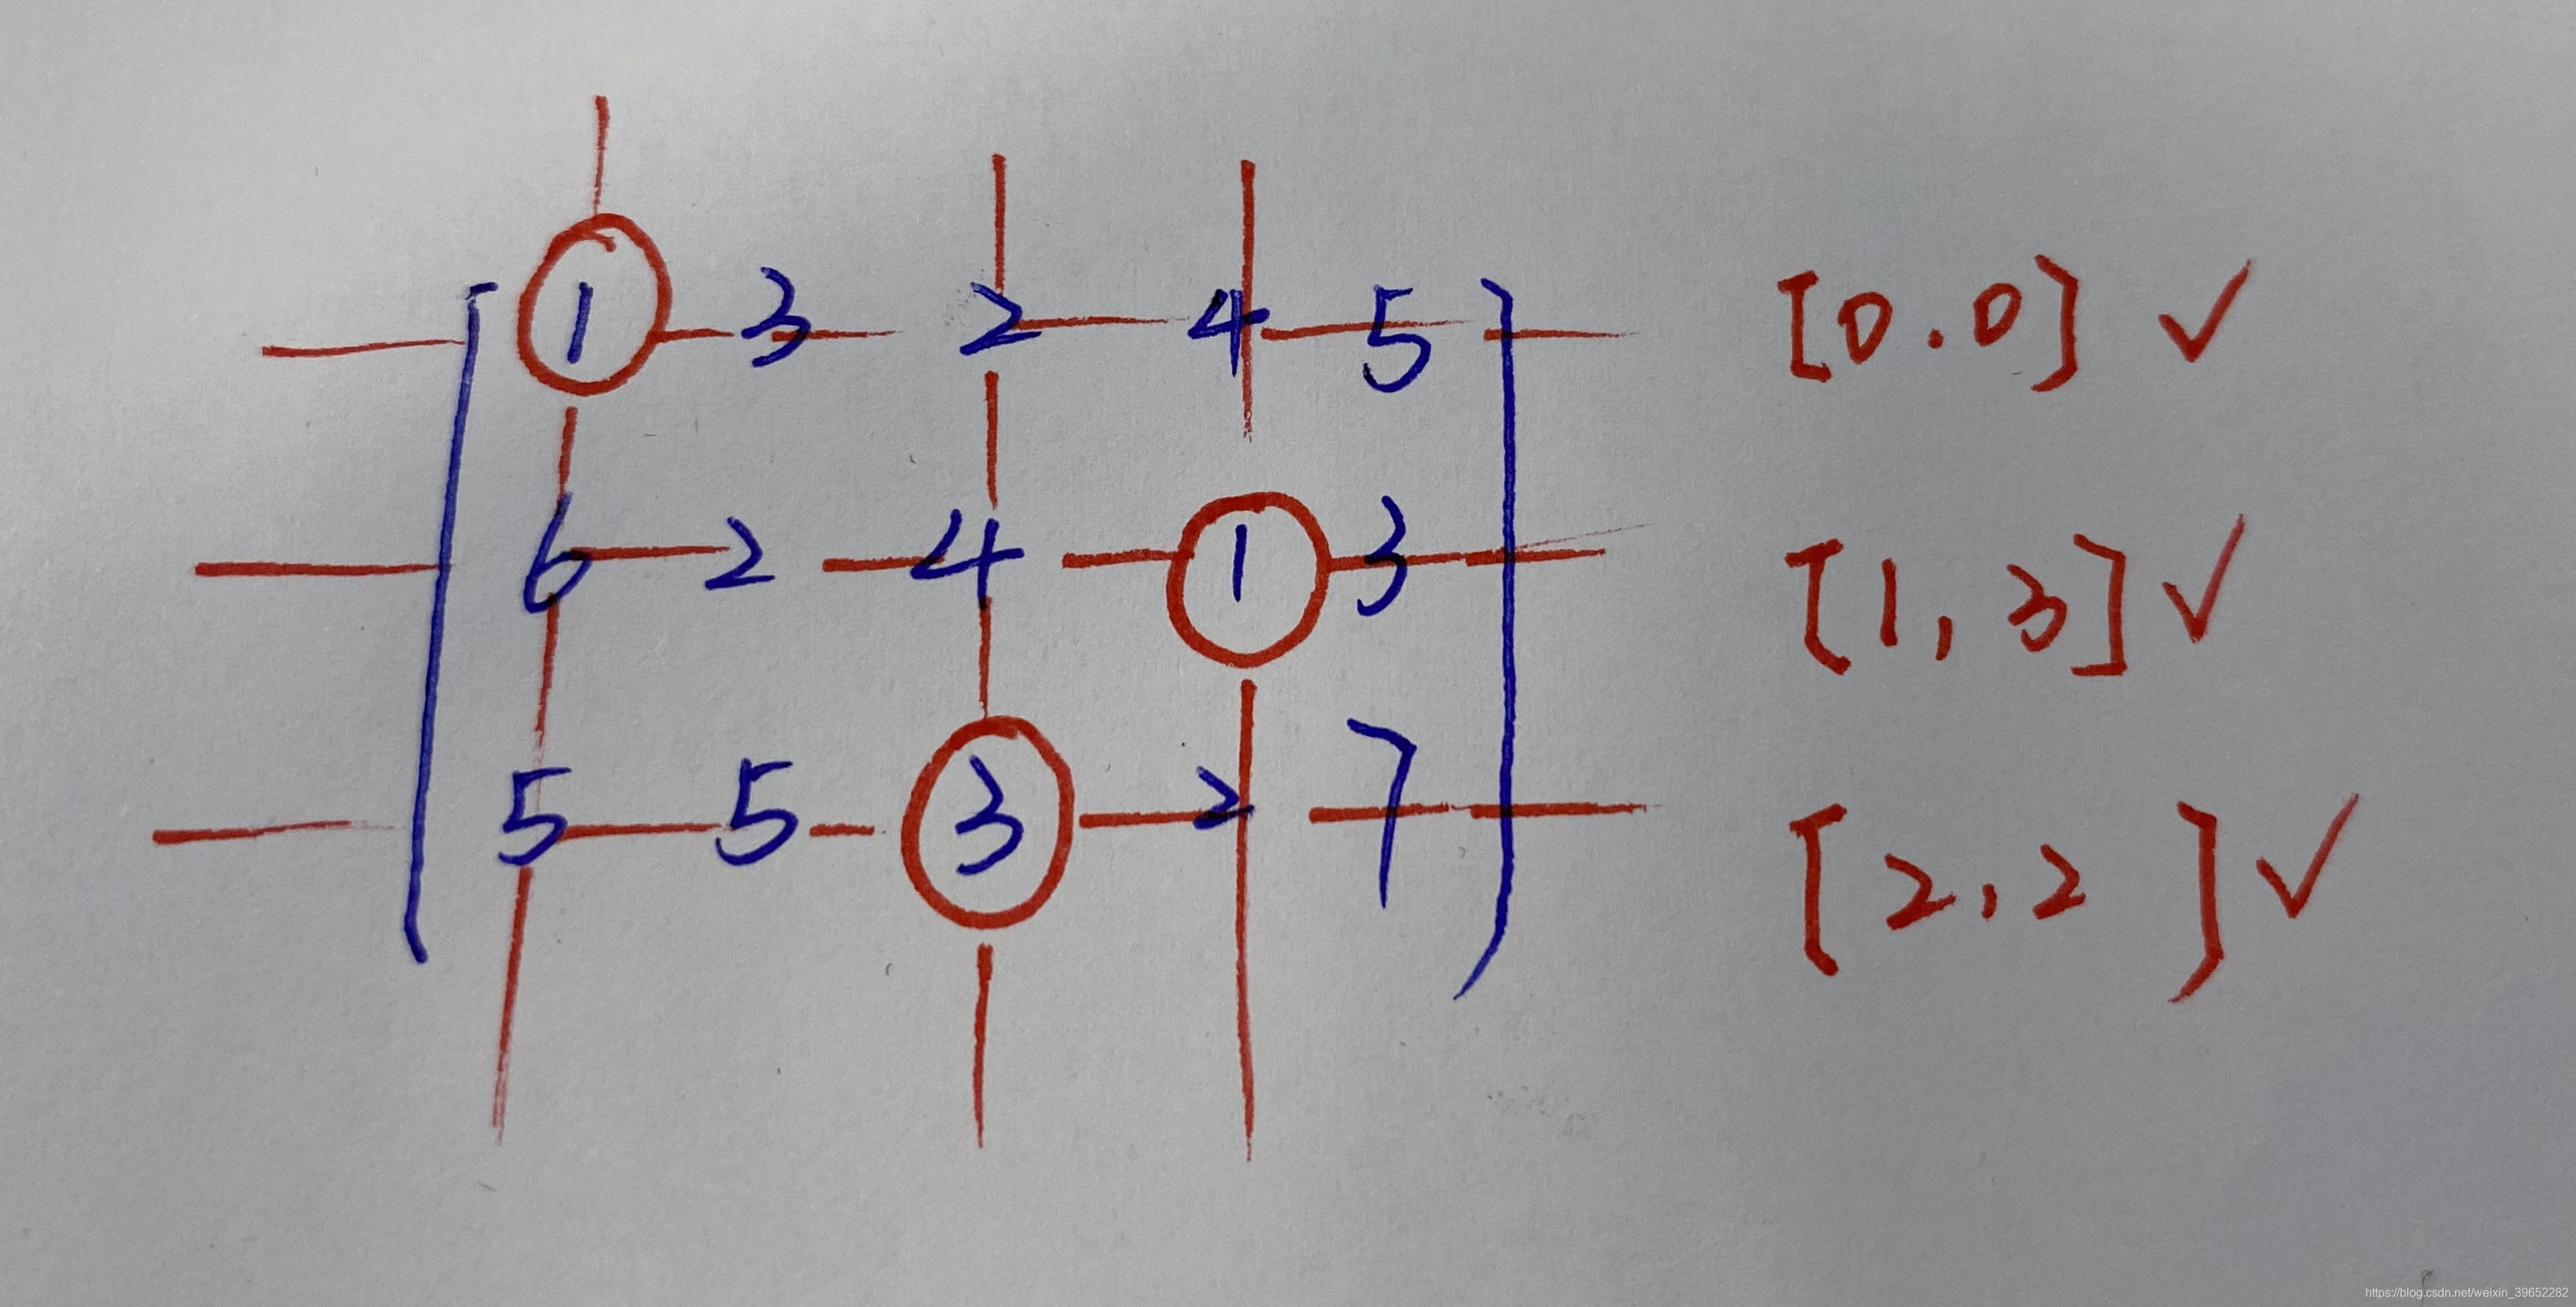 1 3 2 4 5 [0.0] ✓
6 2 4 1 3 [1,3] ✓
5 5 3 2 7 [2,2] ✓
https://blog.csdn.net/weixin_39652282